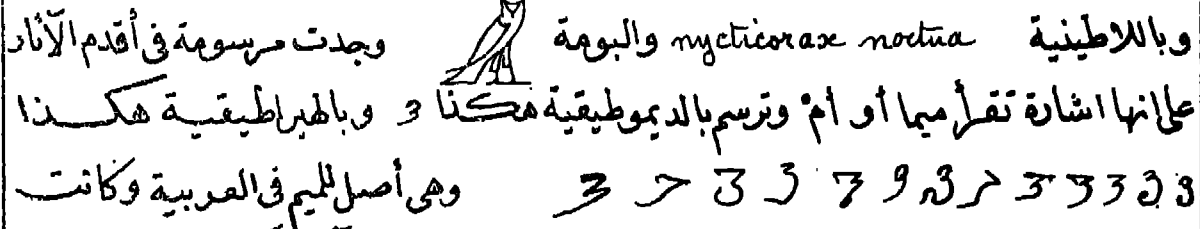 وباللاطينية nycticorax noctua والبومة 𓅓 وجدت مرسومة فى أقدم الآثار
على انها اشارة تقرأ ميما أو أمْ وترسم بالديموطيقية هكذا 3 وبالهيراطيقية هكـــذا
وهى أصل للميم فى العربية وكانت